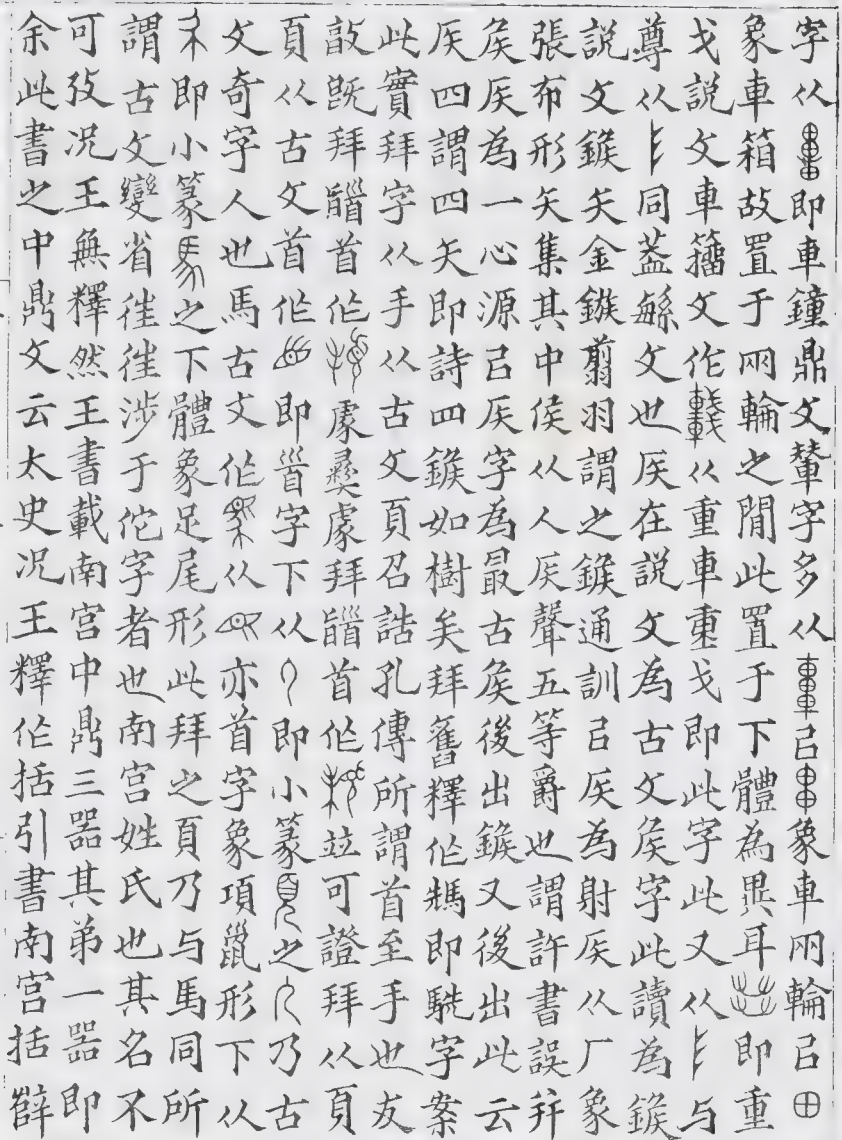 字从即車鐘鼎文輂字多从㠯象車网輪㠯
象車箱故置于网輪之閒此置于下體為異耳即重
戈說文車籒文作从重車重戈即此字此又从与
尊从同蓋緐文也𥎦在說文為古文矦字此讀為鍭
說文鍭矢金鍭翦羽謂之鍭通訓㠯𥎦為射𥎦从厂象
張布形矢集其中侯从人𥎦聲五等爵也謂許書誤并
矦𥎦為一心源㠯𥎦字為最古矦後出鍭又後出此云
𥎦四謂四矢即詩四鍭如樹矣拜舊釋作𩡧即駪字案
此實拜字从手从古文頁召誥孔傳所謂首至手也友
敔旣拜䭫首作彔彝彔拜䭫首作竝可證拜从頁
頁从古文首作即𩠐字下从即小篆之乃古
文奇字人也馬古文作从亦首字象項鬛形下从
即小篆之下體象足尾形此拜之頁乃与馬同所
謂古文變省徃徃涉于佗字者也南宫姓氏也其名不
可攷況王無釋然王書載南宫中鼎三器其弟一器即
余此書之中鼎文云太史況王釋作括引書南宫括辥